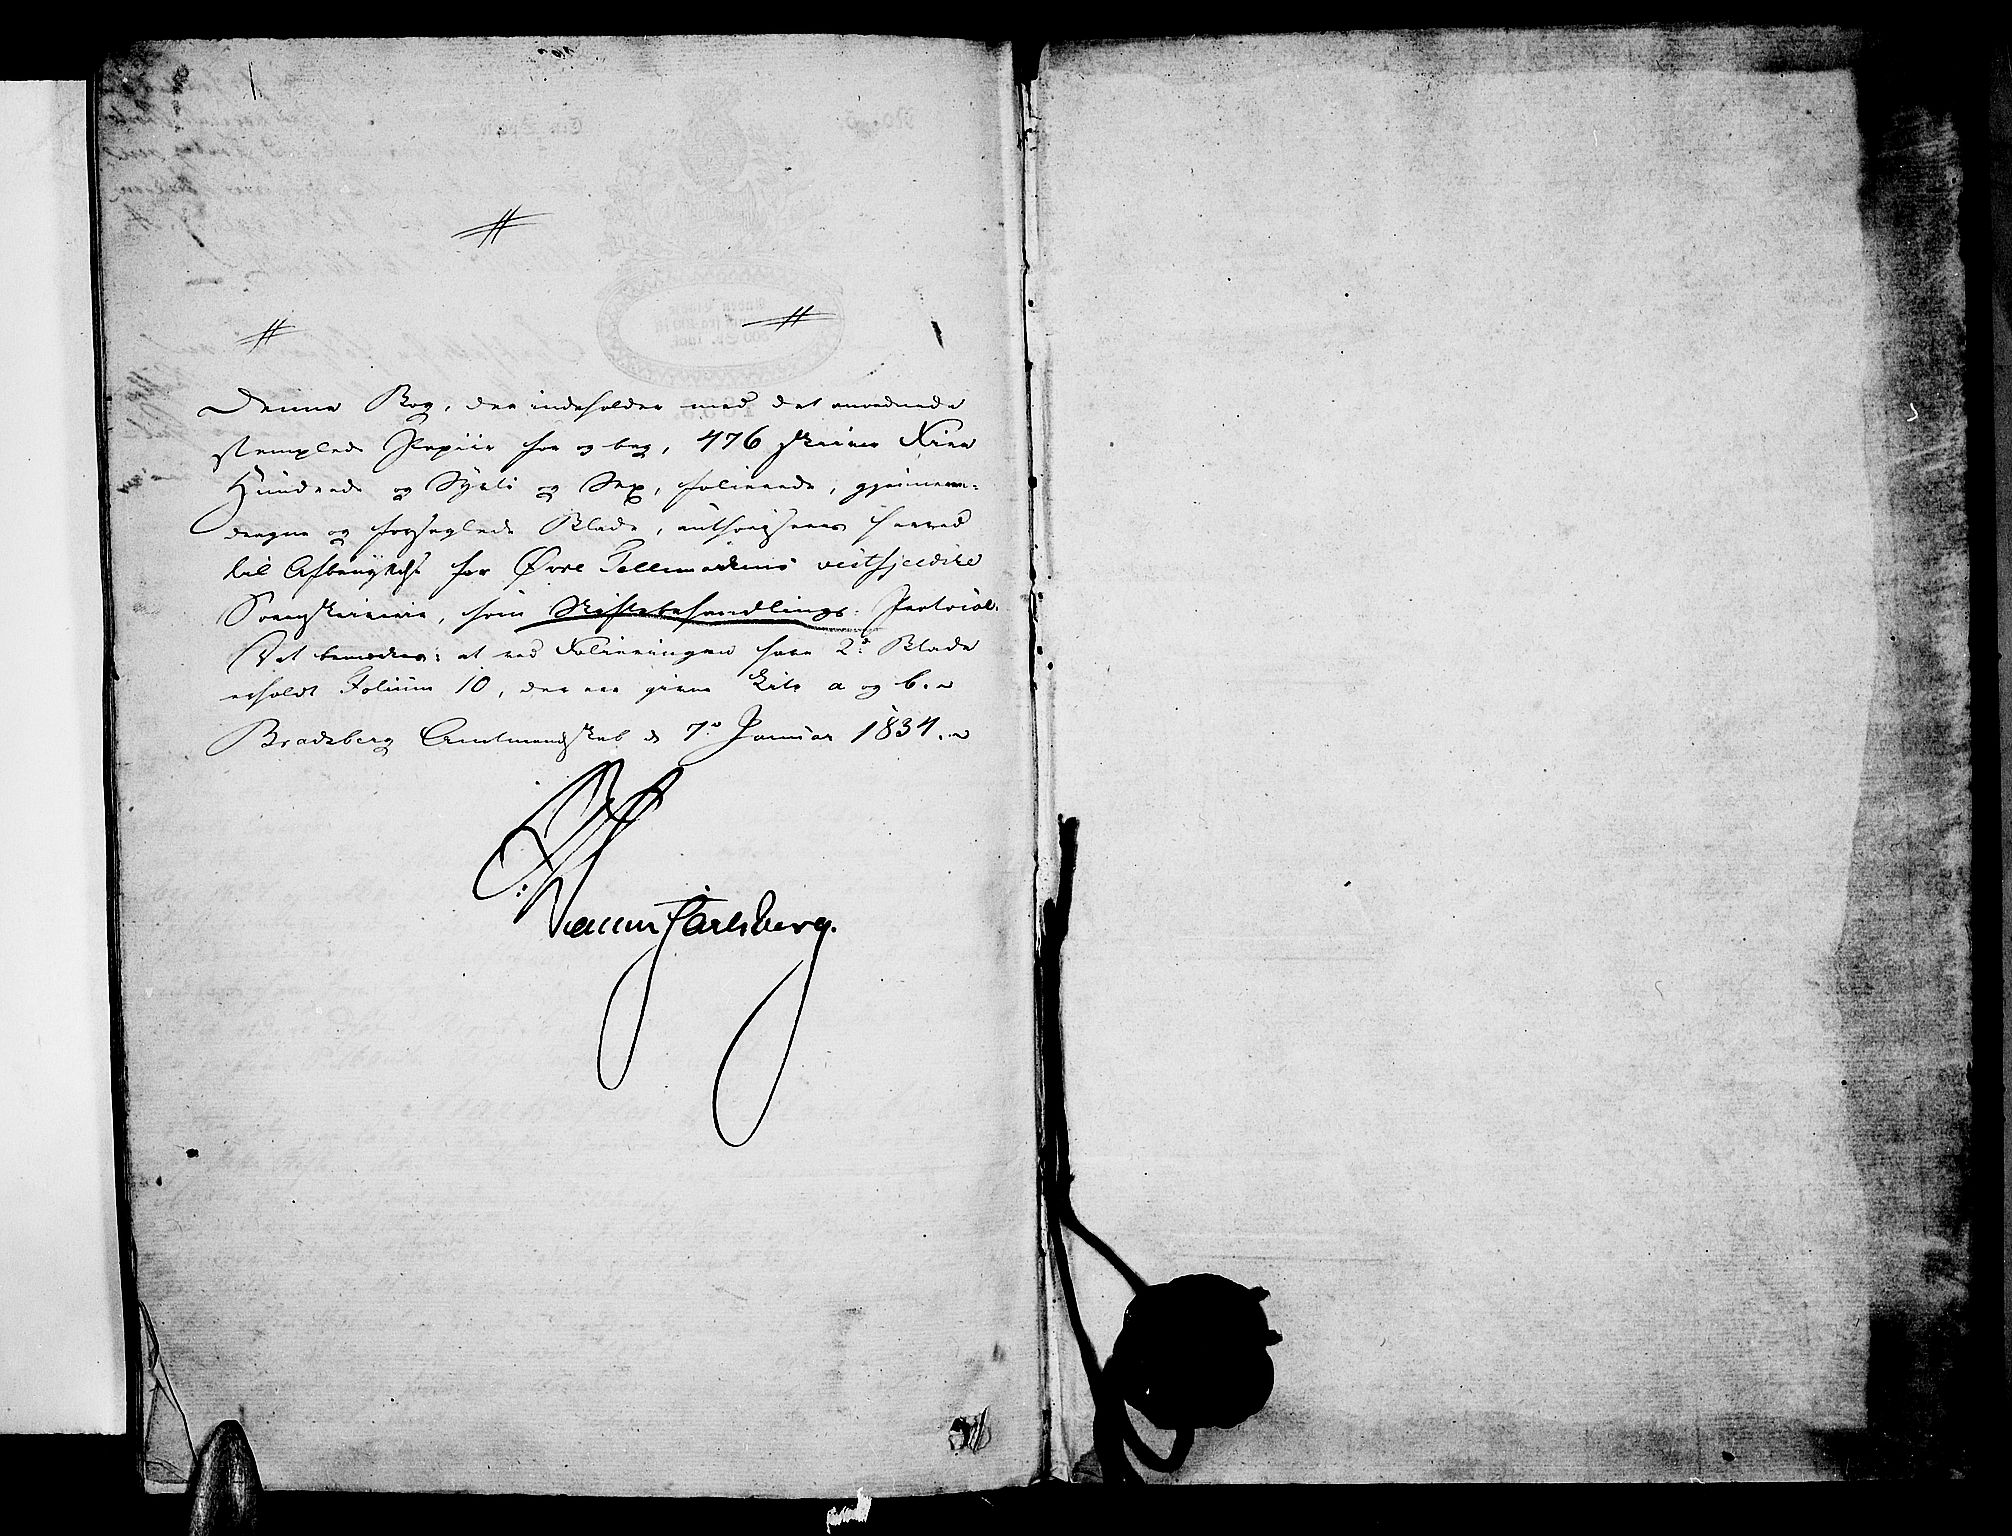 Denne Bog, der indeholder med det anordnede
stemplede Papiir for og bag, 476 skriver Fire
Hundrede og Sytti og Sex, folierede, gjennem-
dragne og forseglede Blade, authoriseres herved
til Afbenyttelse for Øvre Tellemarkens vestfjeldske
Sorenskriverie, som Skiftebehandlings-Protocol.
Det bemærkes: at ved Folieringen have 2de Blade
erholdt Folium 10, der ere givne Litr a og b.
Bradsberg Amtmandskab d 7de Januar 1834.
Wedel Jarlsberg.